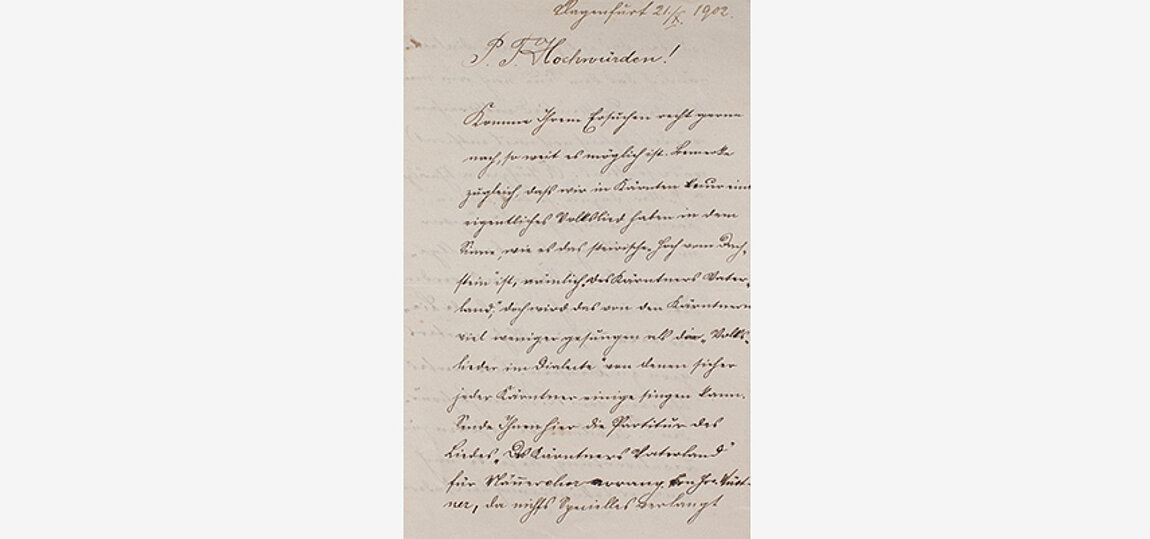 Klagenfurt 21/X. 1902.
P. T. Hochwürden!
Komme Ihrem Ersuchen recht gerne
nach, so weit es möglich ist. Bemerke
zugleich, daß wir in Kärnten kaum ein
eigentliches Volkslied haben in dem
Sinne, wie es das steirische „Hoch vom Dach-
stein“ ist, nämlich „Des Kärntners Vater-
land“, doch wird das von den Kärntnern
viel weniger gesungen als die „Volks-
lieder im Dialecte“ von denen sicher
jeder Kärntner einige singen kann.
Sende Ihnen hier die Partitur des
Liedes „Des Kärntners Vaterland“
für Männerchor
ner, da nichts Specielles verlangt